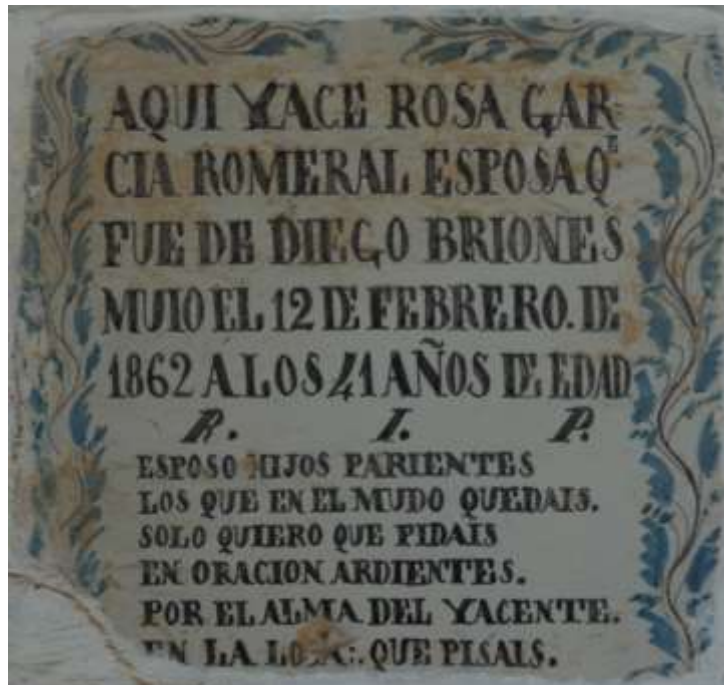 AQUI YACE ROSA GAR
CIA ROMERAL ESPOSA Qᴱ
FUE DE DIEGO BRIONES
MUIO EL 12 DE FEBRERO. DE
1862 A LOS 41 AÑOS DE EDAD
R. I. P.
ESPOSO HIJOS PARIENTES
LOS QUE EN EL MUDO QUEDAIS.
SOLO QUIERO QUE PIDAIS
EN ORACION ARDIENTES.
POR EL ALMA DEL YACENTE.
EN LA QUE PISAIS.